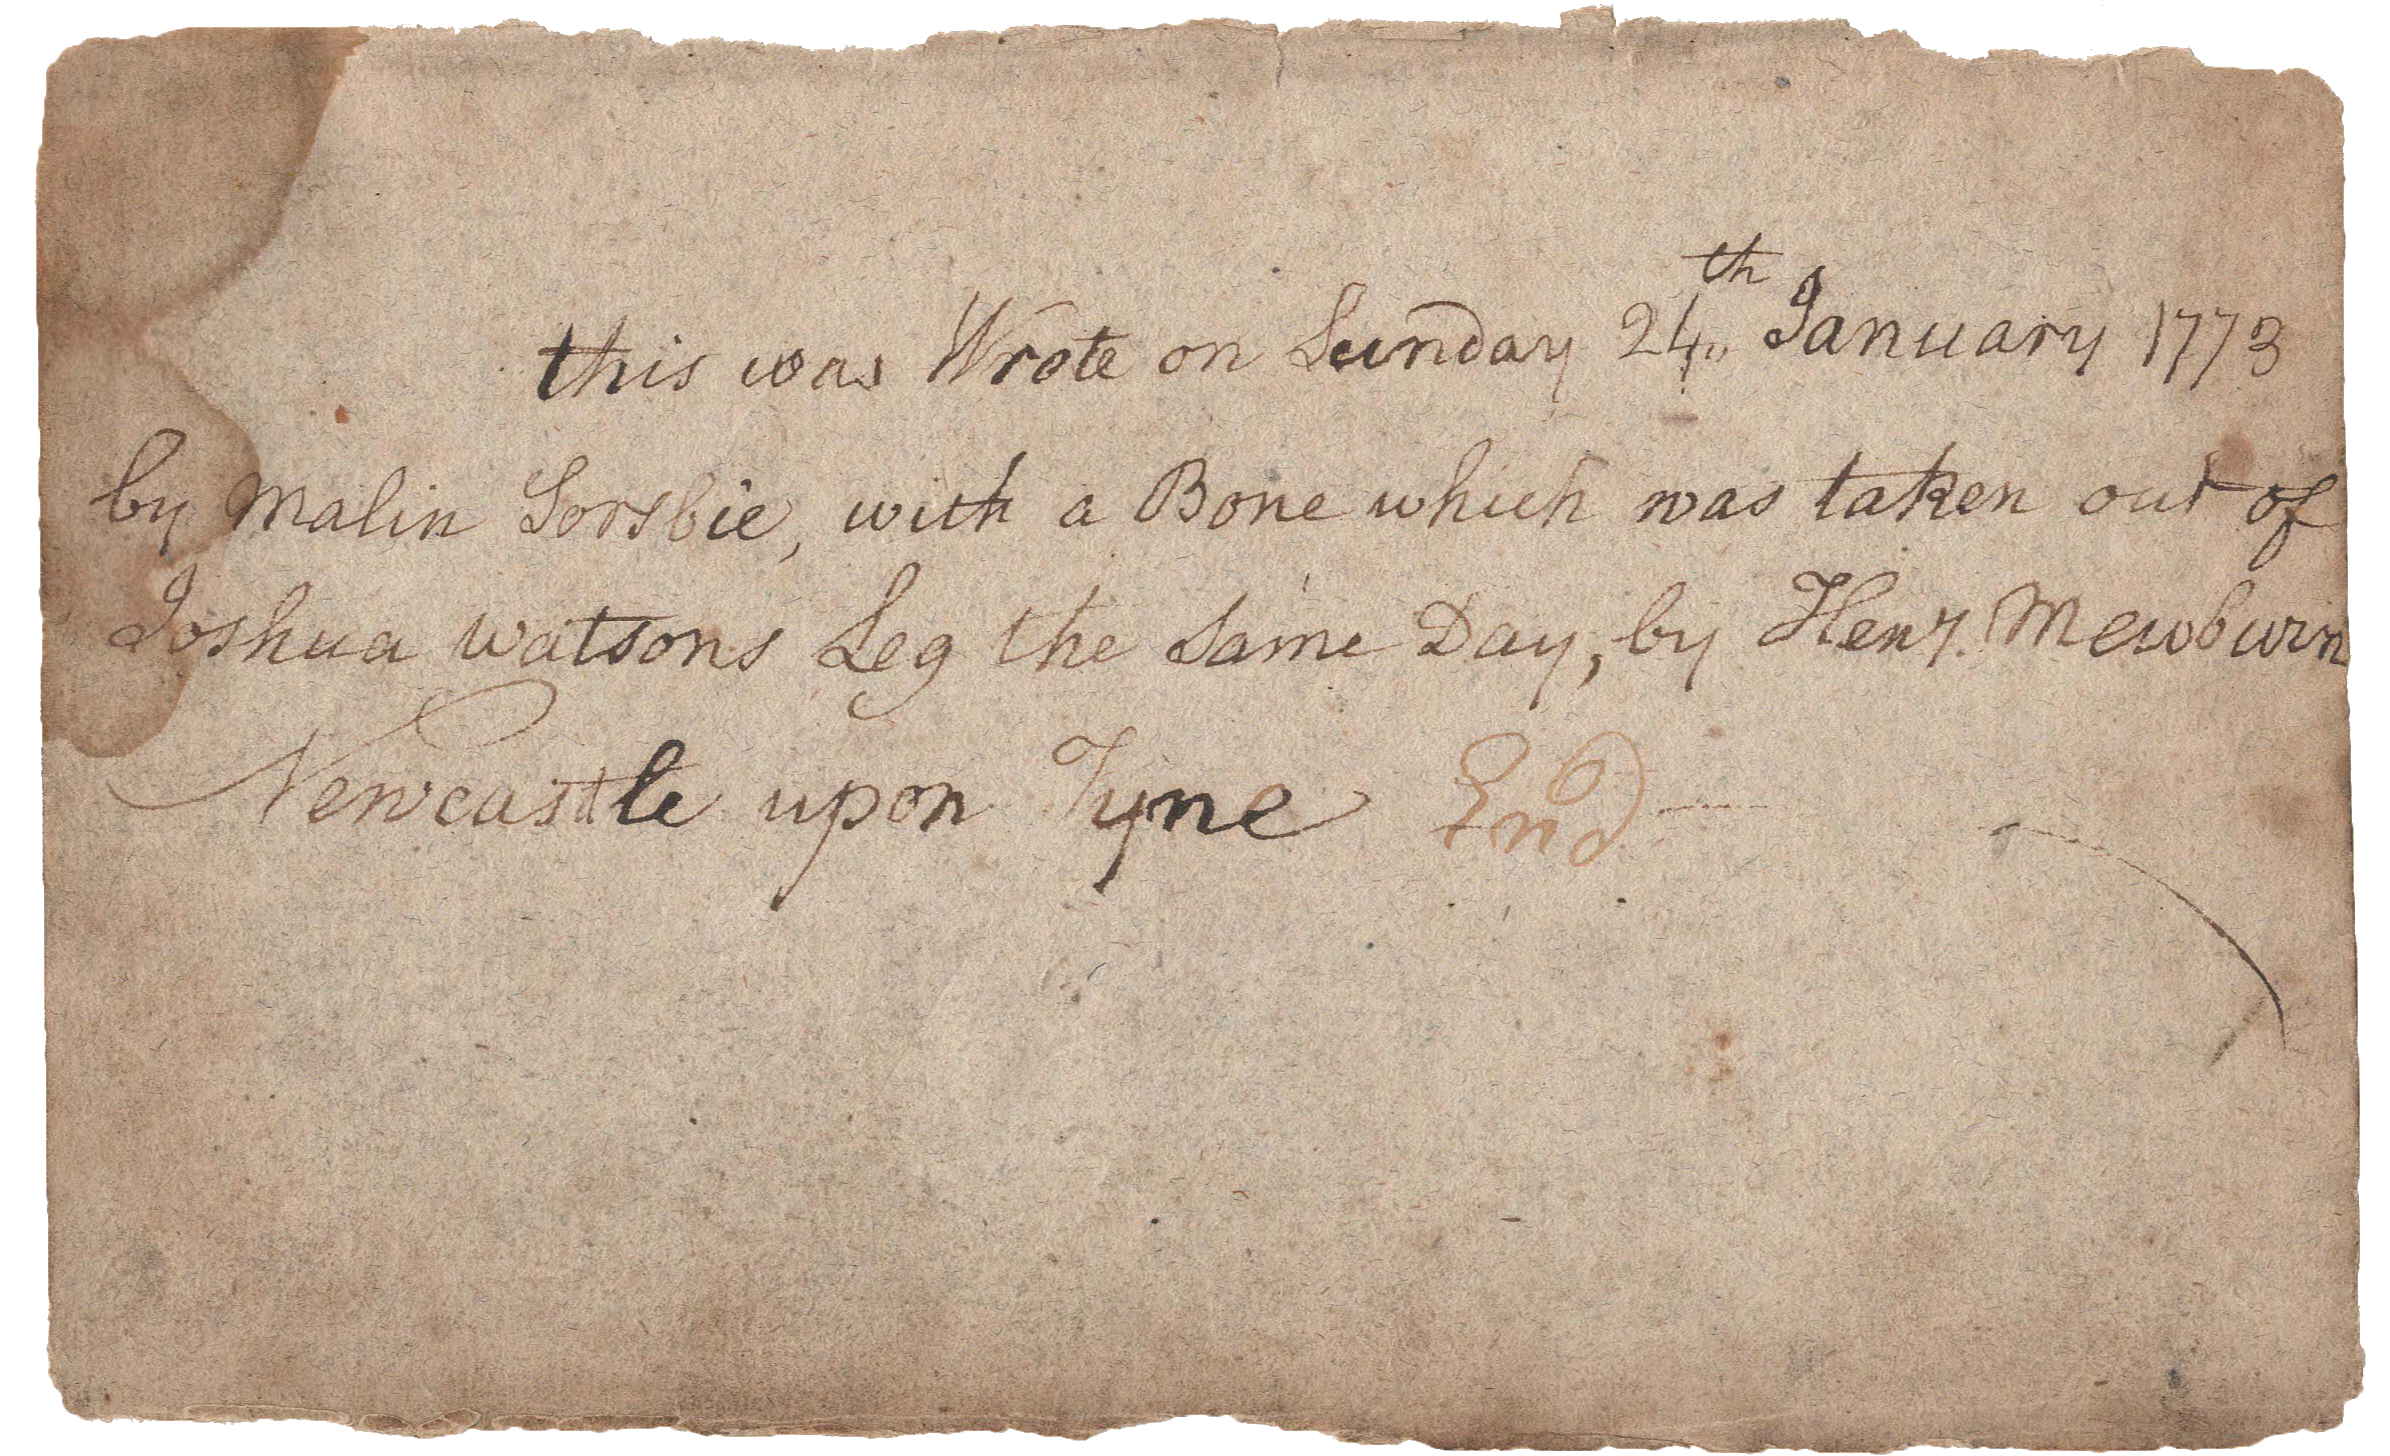 this was Wrote on Sunday 24th January 1773
by Malin Sorsbie, with a Bone which was taken out of
Joshua Watsons Leg the Same Day, by Heny. Mewburn
Newcastle upon Tyne End